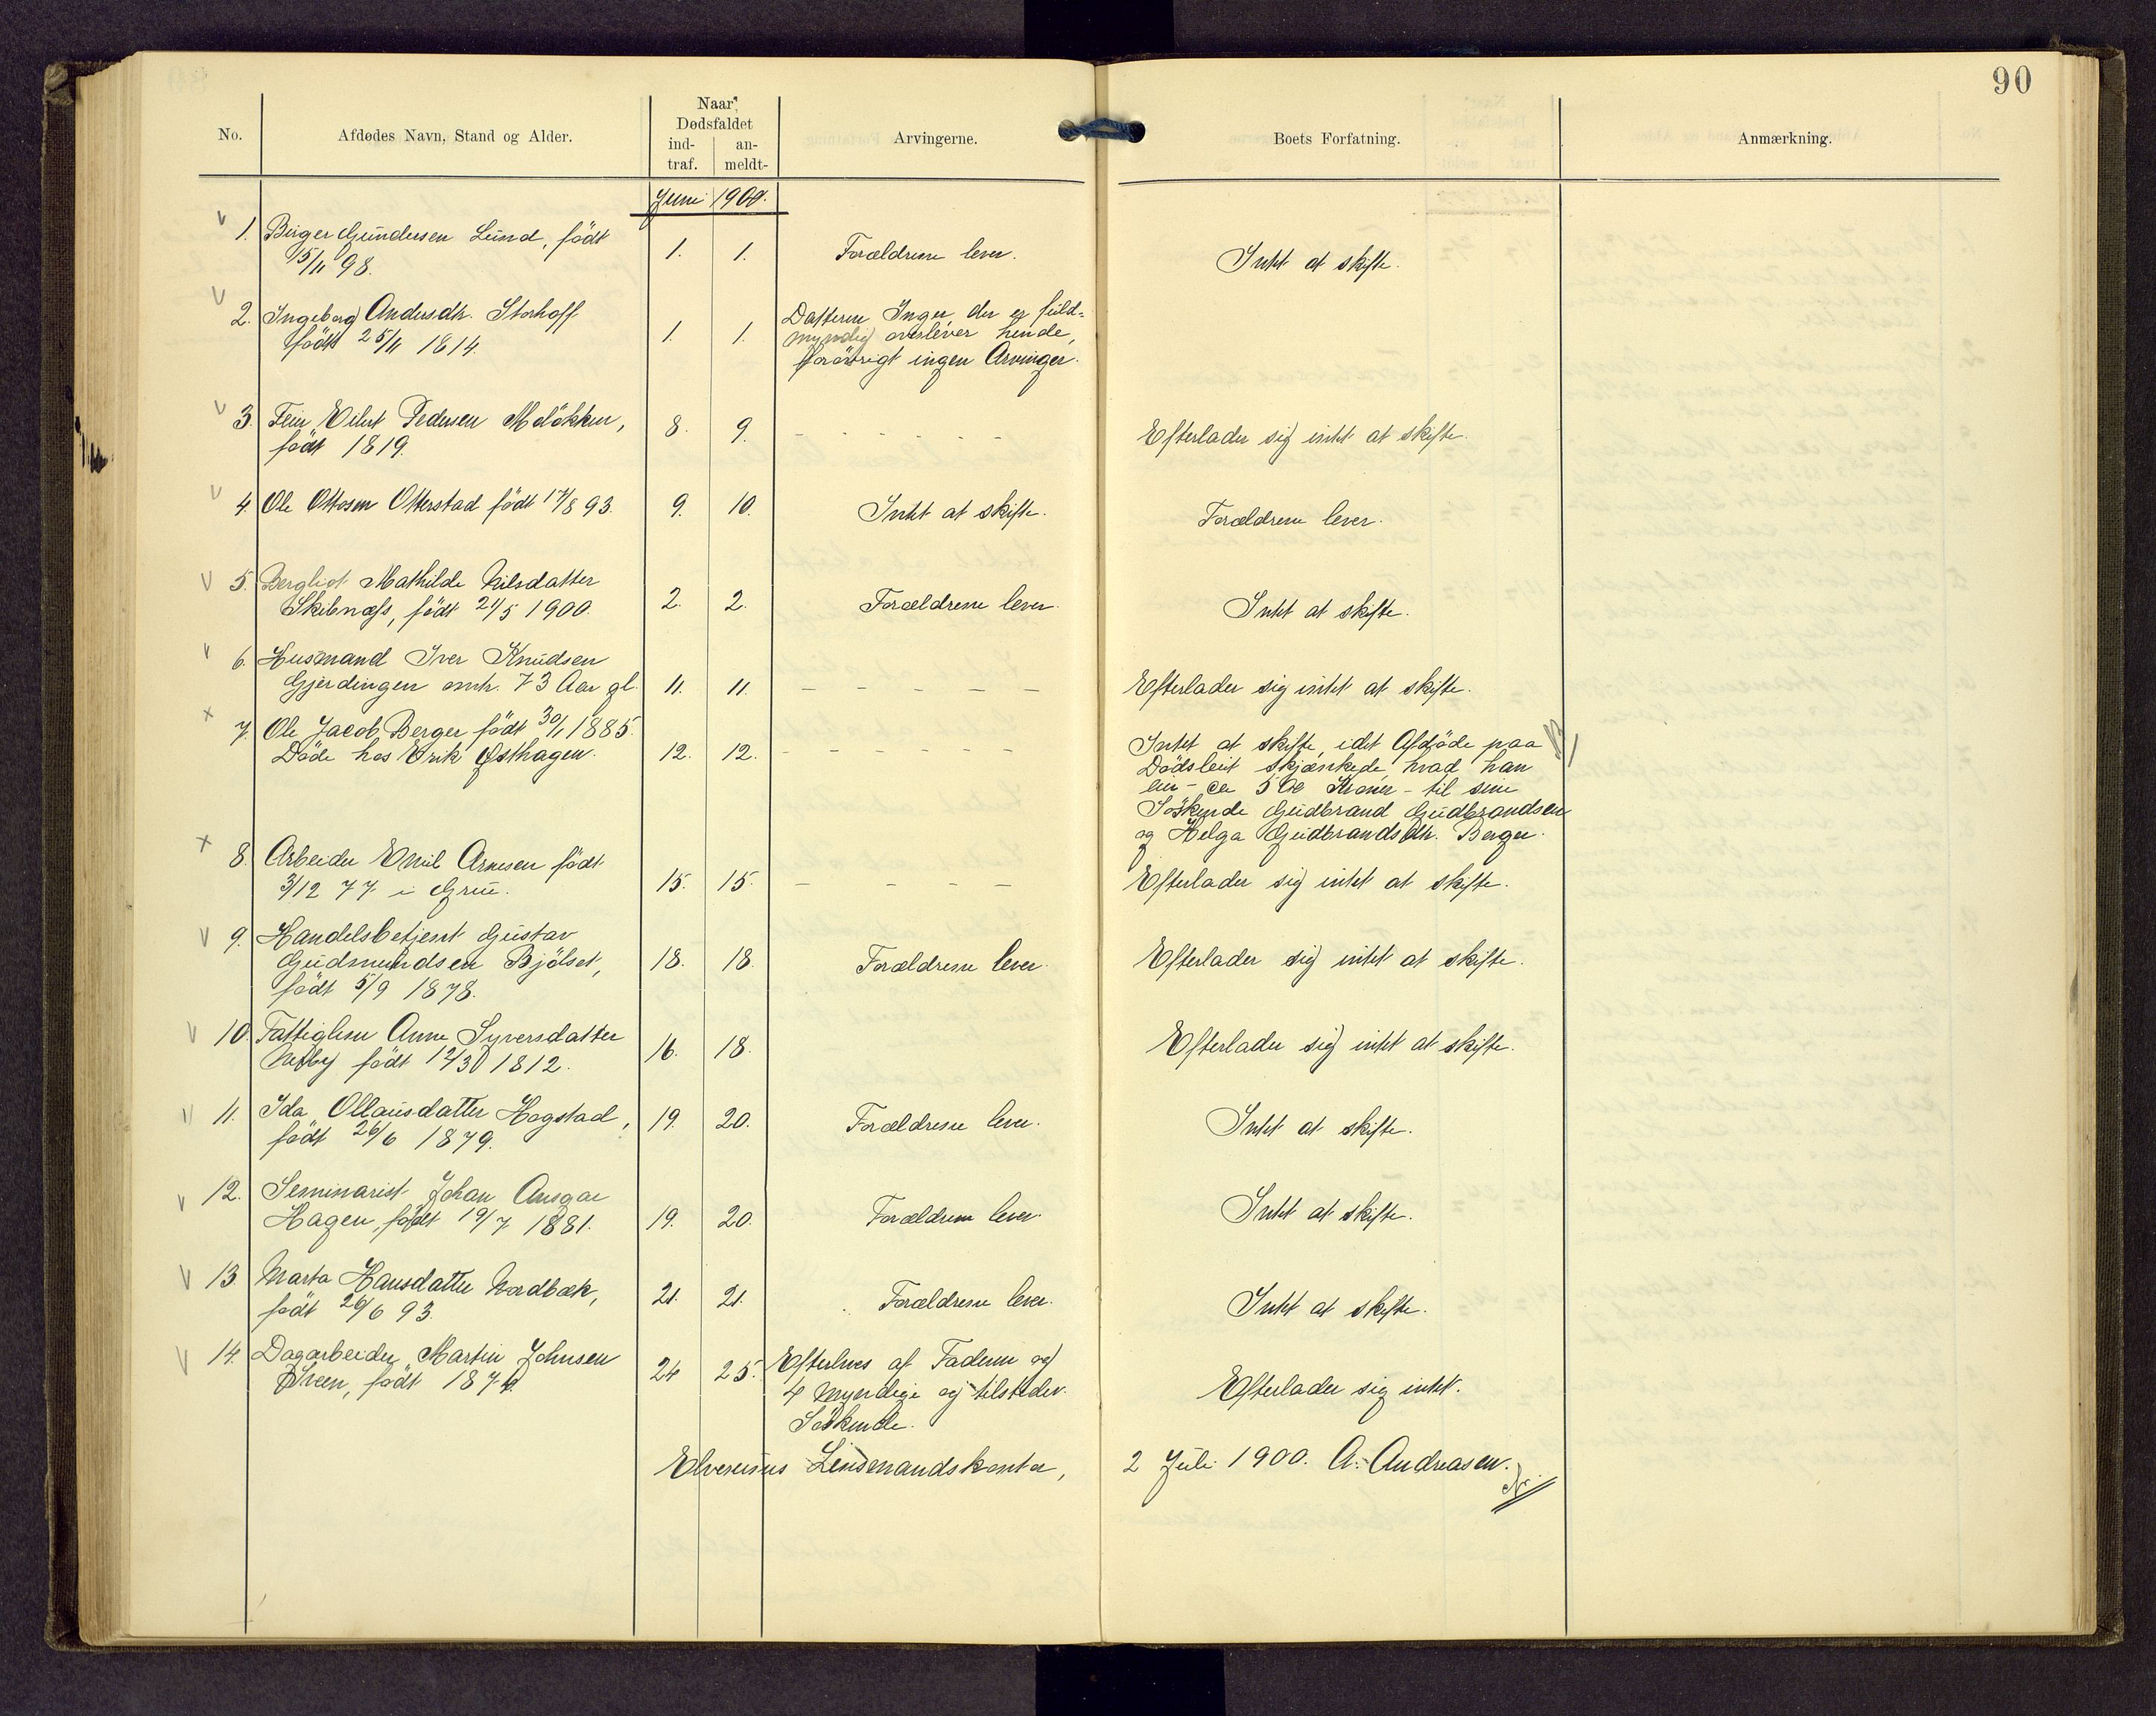 90
No.
Afdødes Navn, Stand og Alder.
Naar
Dødsfaldet
ind-
traf.
an-
meldt-
Arvingerne.
Boets Forfatning.
Anmærkning.
Juni 1900.
1. Birger Gundersen Lund, født
15/11 98.
1. 1. Forældrene lever. Intet at skifte.
2. Ingeborg Andersdtr. Storhoff
født 25/11 1814.
1. 1. Datteren Inger der er fuld-
myndig overlever hende,
forøvrigt ingen Arvinger.
3. Eilert Pedersen Meløkken,
født 1819.
8. 9. - - - - - - Efterlader sig intet at skifte.
4. Ole Ottosen Otterstad født 17/8 93. 9. 10. Intet at skifte. Forældrene lever.
5. Bergliot Mathilde Nilsdatter
Skibnæss, født 21/5 1900. 2. 2. Forældrene lever. Intet at skifte.
6. Husmand Iver Knudsen
Gjerdingen omtr. 73 Aar gl. 11. 11. - - - - - - Efterlader sig intet at skifte.
7. Ole Jacob Berger født 30/1 1885.
Døde hos Erik Østhagen. 12. 12. - - - - - -
Intet at skifte, idet Afdøde paa
Dødsleiet skjænkede, hvad han
- ca 5 Kroner - til sine
Søskende Gudbrand Gudbrandsen
og Helga Gudbrandsdtr. Berger.
8. Arbeider Emil Arnesen født
3/12 77 i Grue. 15. 15. - - - - - Efterlader sig intet at skifte.
9. Handelsbetjent Gustav
Gudmundsen Bjølset,
født 5/9 1878.
18. 18. Forældrene lever. Efterlader sig intet at skifte.
10. Fattiglem Anne Syversdatter
født 12/3 1812.
16. 18. Efterlader sig intet at skifte.
11. Ida Ollausdatter Hogstad,
født 26/6 1879.
19. 20. Forældrene lever. Intet at skifte.
12. Seminarist Johan Ansgar
Hagen, født 19/7 1881. 19. 20. Forældrene lever. Intet at skifte.
13. Marta Hansdatter Nordbæk,
født 26/6 93.
21. 21. Forældrene lever. Intet at skifte.
14. Dagarbeider Martin Johnsen
født 1874.
24 25. Efterleves af Faderen og
4 myndige og tilstedev.
Søskende.
Efterlader sig intet.
Elverums Lensmandskontor, 2 Juli 1900. A. Andreasen.